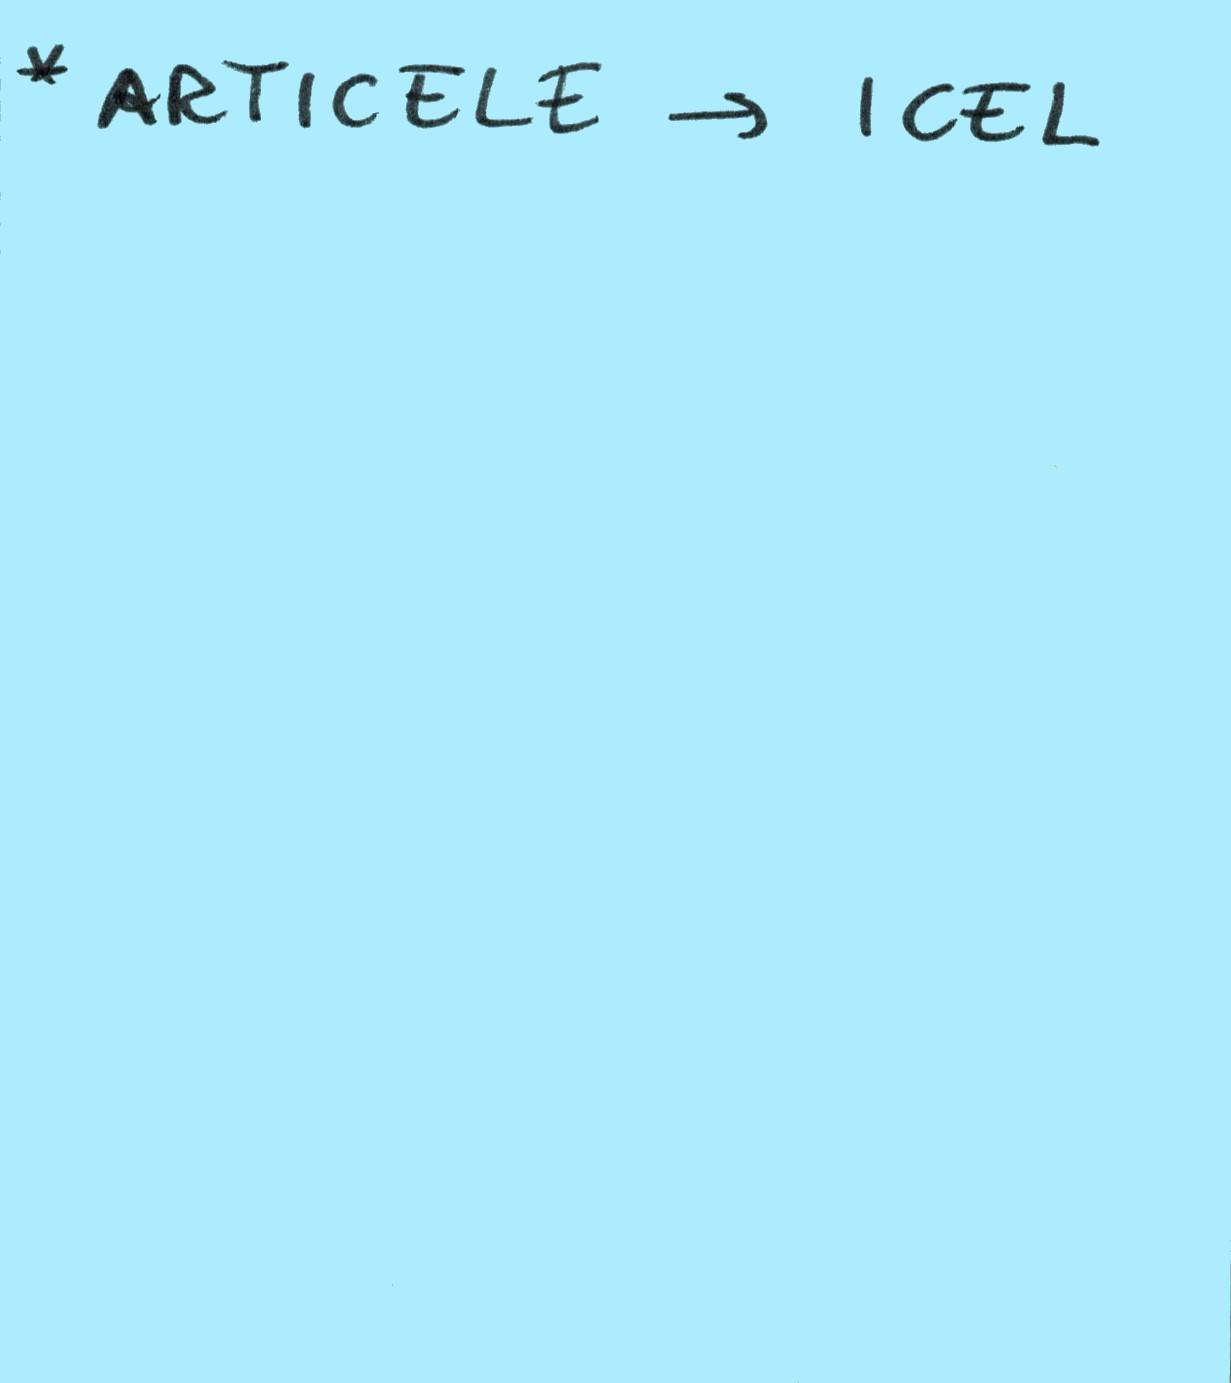 * ARTICELE → ICEL